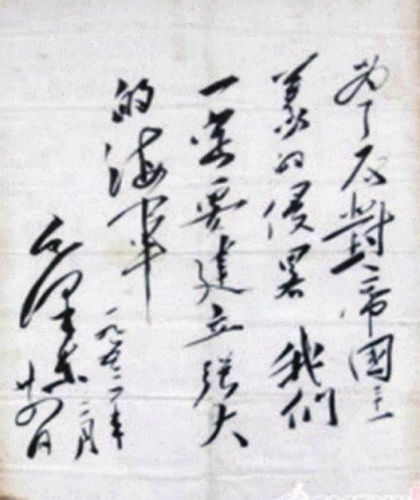 为了反對帝國主
義的侵畧 我們
一定要建立强大
的海軍
毛澤东
一九五三年
二月
廿四日